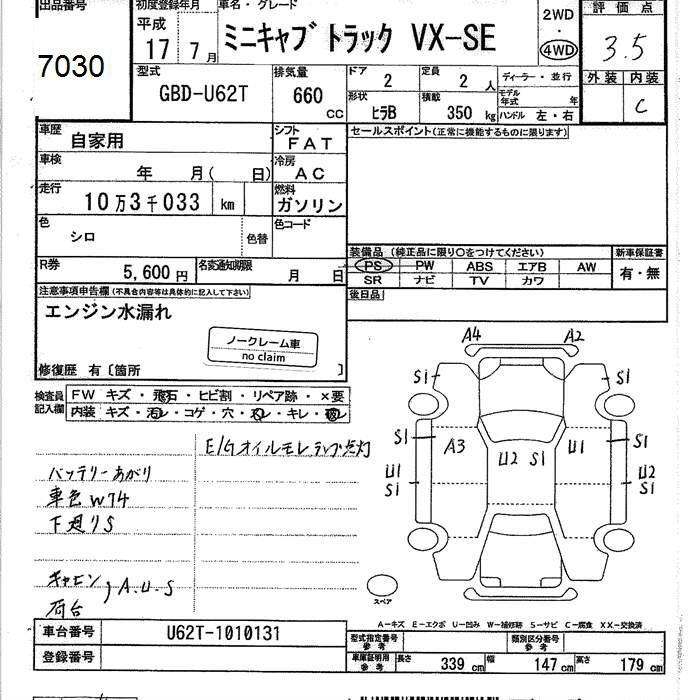 出品番号 初度登録年月 車名・グレード 2WD 評価点
7030 平成 17 7月 ミニキャブトラック VX-SE ・ 4WD 3.5
型式 排気量 ドア 定員 ディーラー・並行 外装 内装
GBD-U62T 660 cc 2 2 人 モデル年式 年 C
形状 積載 ハンドル 左・右
ヒラB 350 kg
車歴 自家用 シフト FAT セールスポイント(正常に機能するものに限ります)
車検 年 月( 日) 冷房 AC
走行 10万3千033 km 燃料 ガソリン
色 シロ 色替 色コード
装備品 (純正品に限り○をつけてください) 新車保証書
PS PW ABS エアB AW 有・無
SR ナビ TV カワ
R券 5,600円 名変通知期限 月 日
後日品
注意事項申告欄(不具合内容等は具体的に記入して下さい)
エンジン水漏れ
ノークレーム車
no claim
修復歴 有〔箇所 〕
検査員記入欄 FW キズ・飛石・ヒビ割・リペア跡・×要
内装 キズ・汚レ・コゲ・穴・スレ・キレ・
E/Gオイルモレ ランプ点灯
バッテリーあがり
車色W74
下廻りS
キャビン
荷台 A.U.S
A4 A2
S1 S1
S1 A3 U2 S1 U1 S1
U1 S1 U2 S1
スペア
A-キズ E-エクボ U-凹み W-補修跡 S-サビ C-腐食 XX-交換済
車台番号 U62T-1010131
型式指定番号 参考 類別区分番号 参考
登録番号
車庫証明用 参考 長さ 339 cm 幅 147 cm 高さ 179 cm